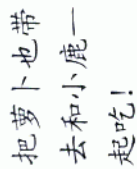 把萝卜也带
去和小鹿一
起吃！